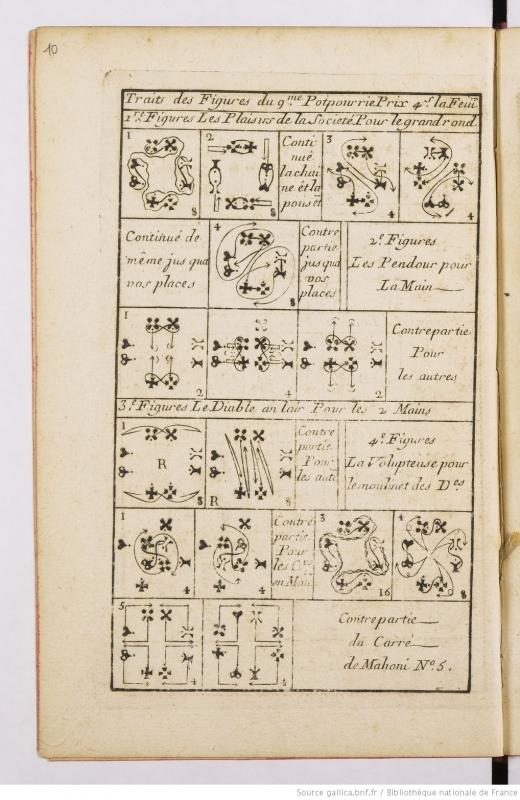 10
Traits des Figures du 9.me Potpourrie Prix 4 s. la Feuil
1.re Figures Les Plaisirs de la Societé Pour le grand rond
1
8
2
8
Conti
nué
la chai
ne ét la
pous ét
3
4
4
Continué de
même jus qua
vos places
4
8
Contre
partie
jus qua
vos
places
2.e Figures
Les Pendour pour
La Main
1
2
4
1
2
Contrepartie
Pour
les autres
3.e Figures Le Diable an lair Pour les 2 Mains
1
R
8
R
8
Contre
partie
Pour
les aut.
4.e Figures
La Volupteuse pour
le moulinet des D.es
1
4
4
Contre
partie
Pour
les C.ers
en Mou
3
16
4
8
5
4
4
Contrepartie
du Carré
de Mahoni N.o 5.
Source gallica.bnf.fr / Bibliothèque nationale de France